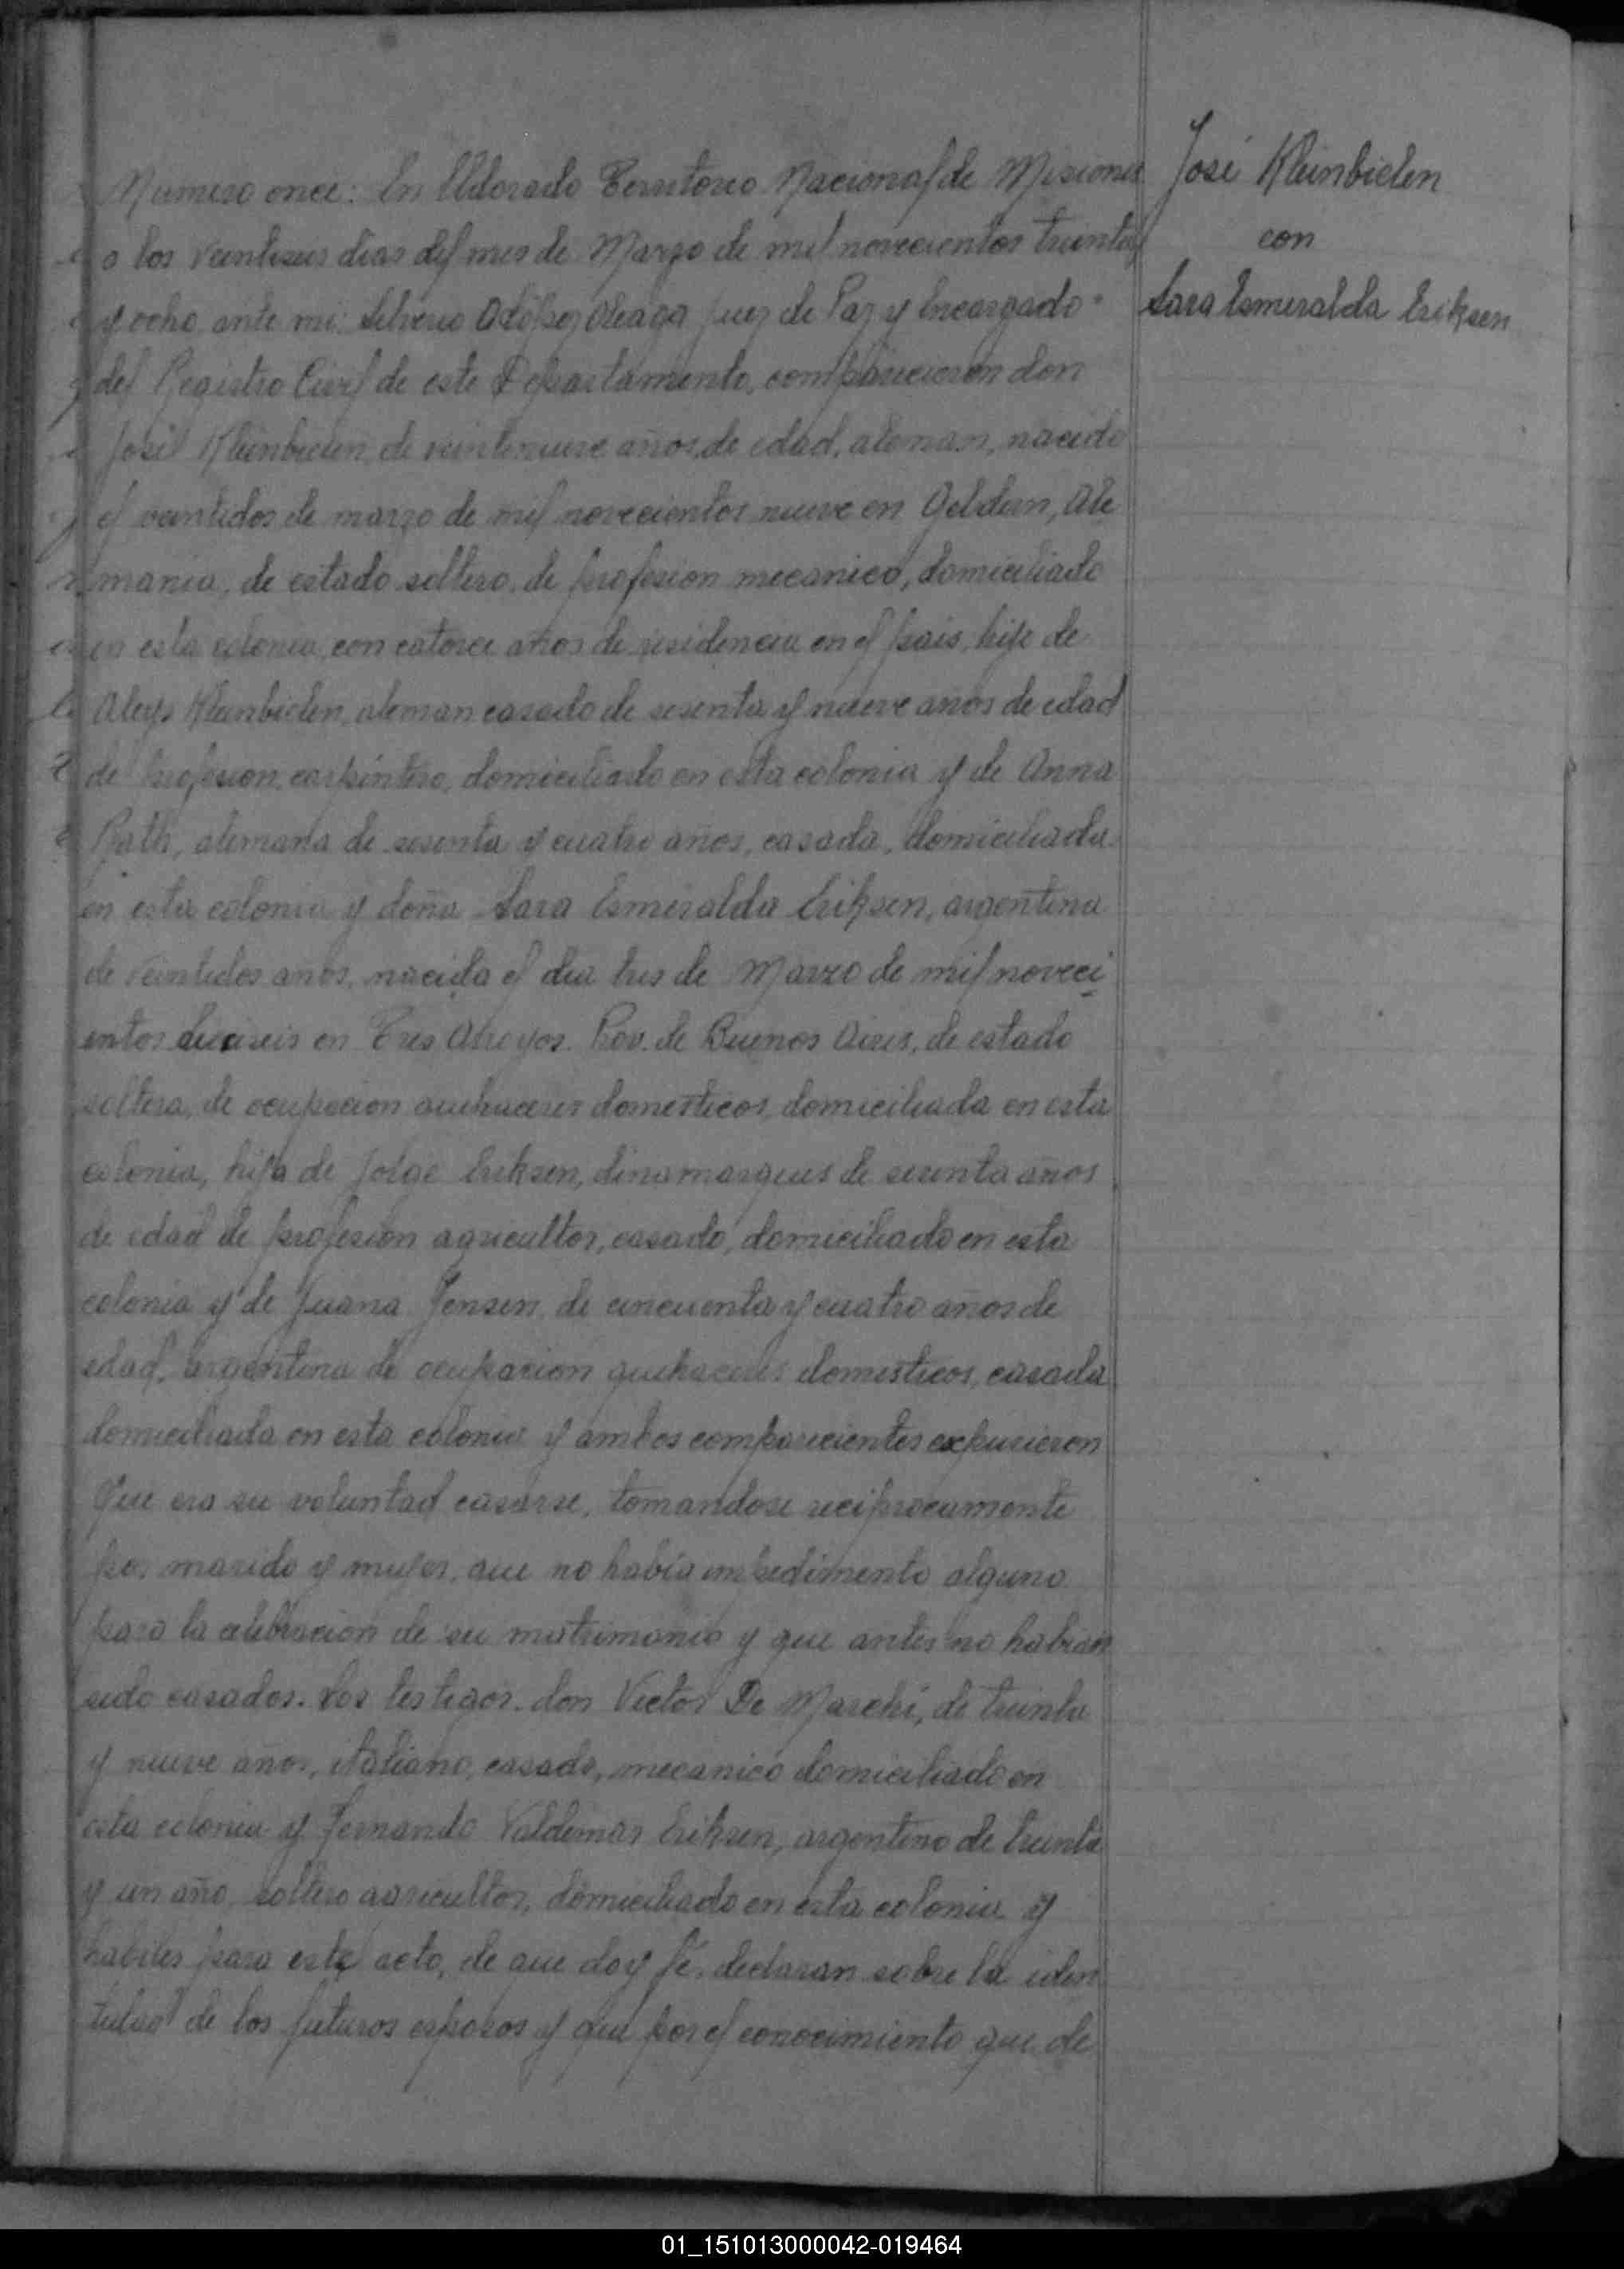 Numero once: En Eldorado Territorio Nacional de Misiones
a los veintiseis dias del mes de Marzo de mil novecientos treinta
y ocho, ante mi: Silverio Aleaga Juez de Paz y Encargado
del Registro Civil de este Departamento, comparecieron don
José Kleinbielen, de veintenueve años de edad, aleman, nacido
el veintidos de marzo de mil novecientos nueve en Geldern, Ale
mania, de estado soltero, de profesion mecanico, domiciliado
en esta colonia, con catorce años de residencia en el pais, hijo de
Aleys Kleinbielen, aleman casado de sesenta y nueve años de edad
de profesion carpintero, domiciliado en esta colonia y de Anna
Rath, alemana de sesenta y cuatro años, casada, domiciliada
en esta colonia y doña Sara Esmeralda Eriksen, argentina
de veintidos años, nacida el dia tres de Marzo de mil noveci
entos dieciseis en Tres Arroyos. Prov. de Buenos Aires, de estado
soltera, de ocupacion quehaceres domesticos, domiciliada en esta
colonia, hija de Jorge Eriksen, dinamarques de sesenta años
de edad de profesion agricultor, casado, domiciliado en esta
colonia y de Juana Jensen, de cincuenta y cuatro años de
edad, argentina de ocupacion quehaceres domesticos, casada
domiciliada en esta colonia y ambos comparecientes expusieron
Que era su voluntad casarse, tomandose reciprocamente
por marido y mujer, que no había impedimento alguno
para la celebracion de su matrimonio y que antes no habian
sido casados. Los testigos. don Victor De Marchi, de treinta
y nueve años, italiano, casado, mecanico domiciliado en
esta colonia y Fernando Valdemar Eriksen, argentino de treinta
y un año, soltero agricultor, domiciliado en esta colonia y
habiles para este acto, de que doy fé, declaran sobre la iden
tidad de los futuros esposos y que por el conocimiento que de
José Kleinbielen
con
Sara Esmeralda Eriksen
01_151013000042-019464